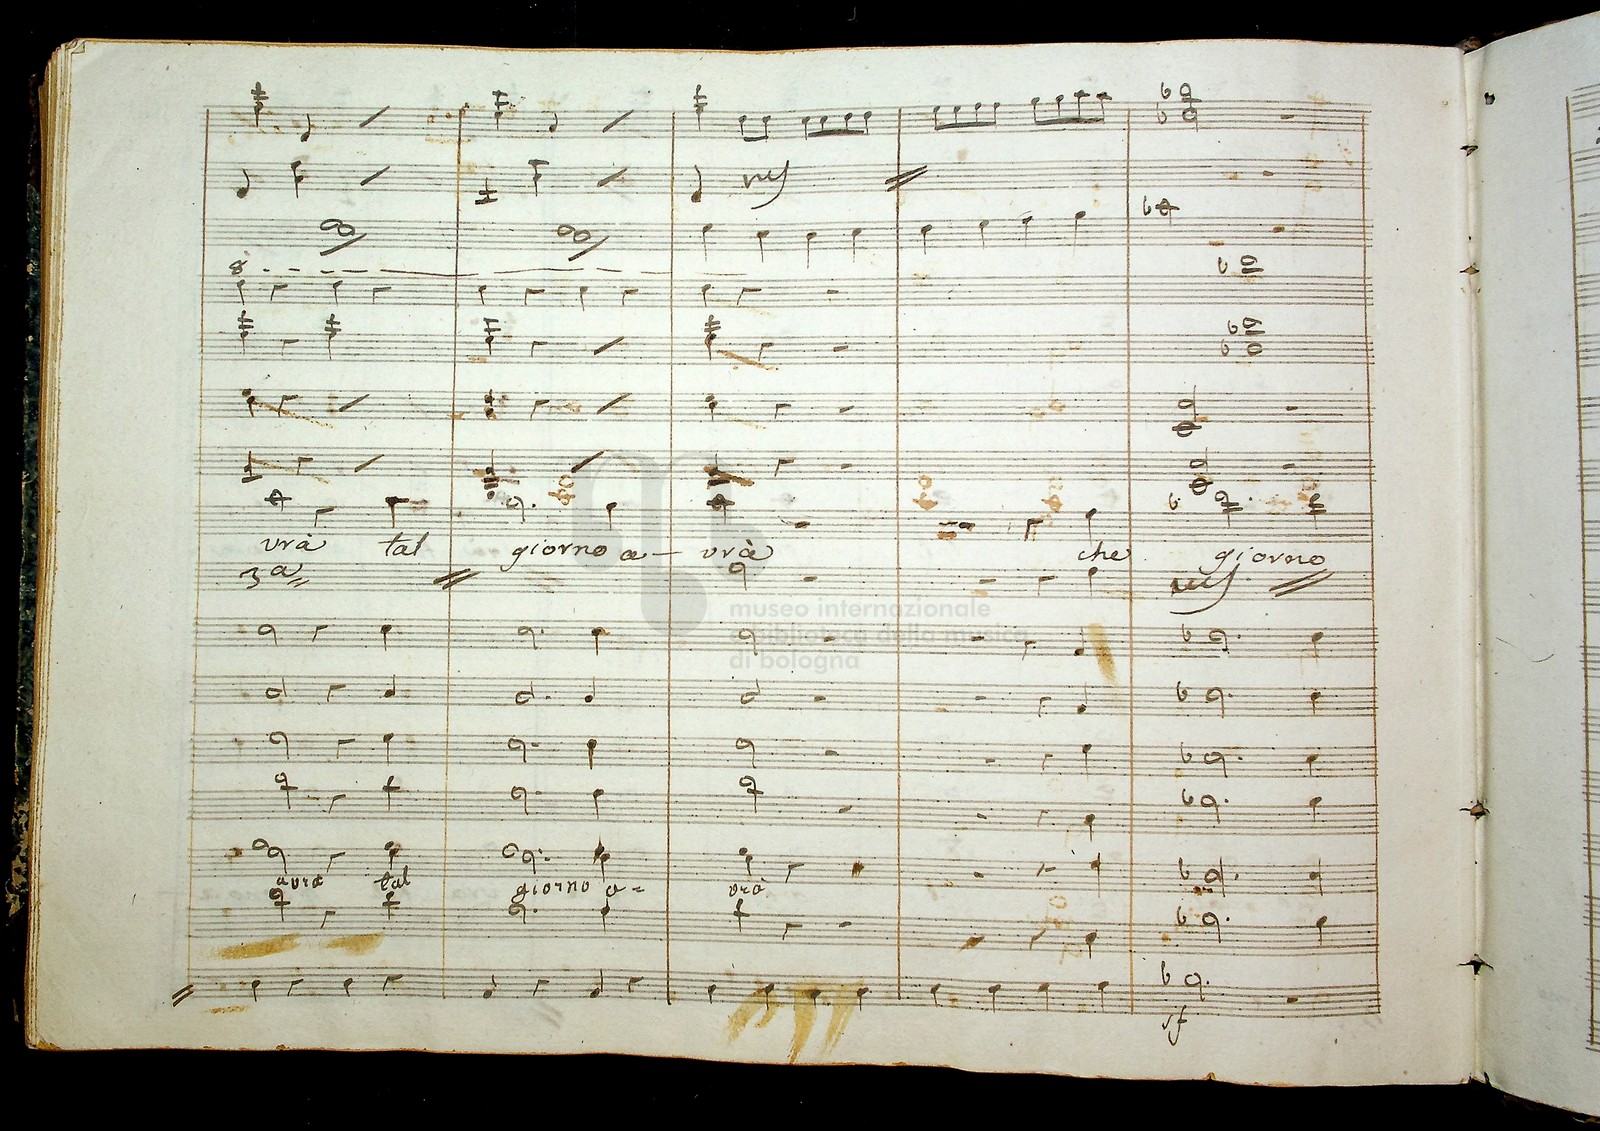 8
vrà tal giorno a- vrà che giorno
3a
museo internazionale
e biblioteca della musica
di bologna
avrà tal giorno a= vrà
sf